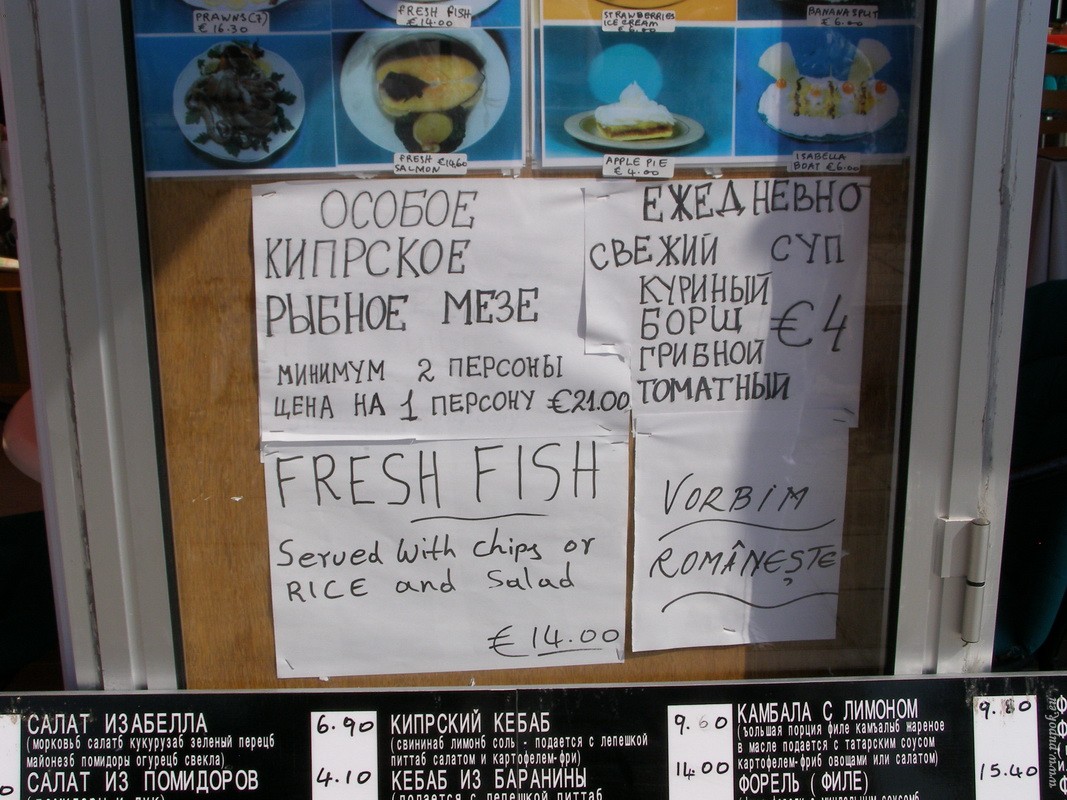 PRAWNS(7)
€ 16.30
FRESH FISH
€ 14.00
STRAWBERRIES
ICE CREAM
BANANA SPLIT
€ 6.00
FRESH €14.60
SALMON
APPLE PIE
€ 4.00
ISABELLA
BOAT €6.00
ОСОБОЕ
КИПРСКОЕ
РЫБНОЕ МЕЗЕ
МИНИМУМ 2 ПЕРСОНЫ
ЦЕНА НА 1 ПЕРСОНУ €21.00
ЕЖЕДНЕВНО
СВЕЖИЙ СУП
КУРИНЫЙ
БОРЩ €4
ГРИБНОЙ
ТОМАТНЫЙ
FRESH FISH
Served With chips or
RICE and Salad
€ 14.00
VORBIM
ROMÂNEȘTE
САЛАТ ИЗАБЕЛЛА 6.90
(морковьб салатб кукурузаб зеленый перецб
майонезб помидоры огурецб свекла)
САЛАТ ИЗ ПОМИДОРОВ 4.10
КИПРСКИЙ КЕБАБ 9.60
(свининаб лимонб соль - подается с лепешкой
питтаб салатом и картофелем-фри)
КЕБАБ ИЗ БАРАНИНЫ 14.00
(подается с лепешкой питтаб
КАМБАЛА С ЛИМОНОМ 9.80
(ъольшая порция филе камъалыб жареное
в масле подается с татарским соусом
картофелем-фриб овощами или салатом)
ФОРЕЛЬ ( ФИЛЕ ) 15.40